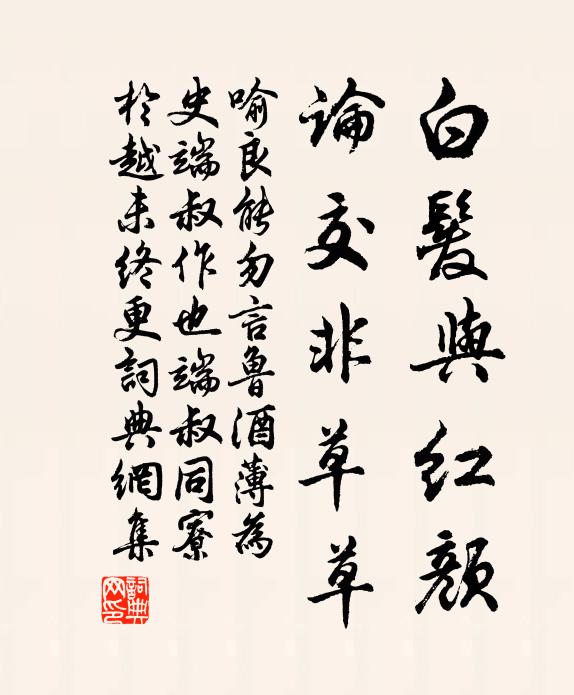 白髮與紅顏
論交非草草
喻良能勿言魯酒薄為
史端叔作也端叔同寮
於越未終更詞典網集
詞典
网印